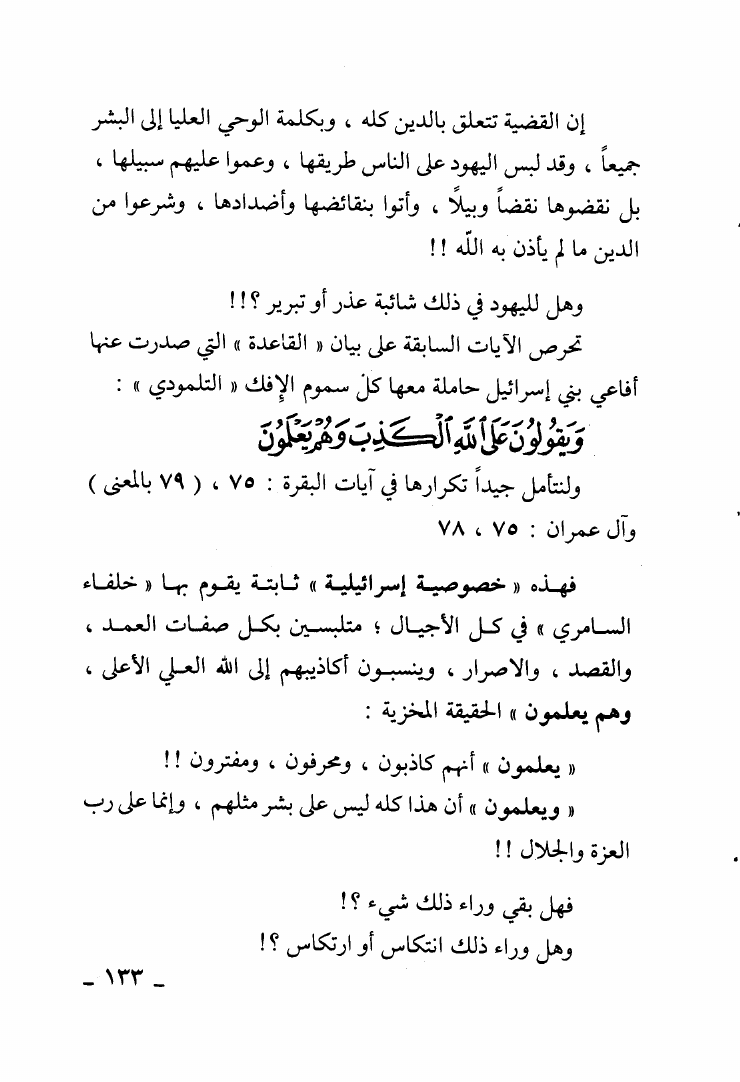 إن القضية تتعلق بالدين كله ، وبكلمة الوحي العليا إلى البشر
جميعاً ، وقد لبس اليهود على الناس طريقها ، وعموا عليهم سبيلها ،
بل نقضوها نقضاً وبيلًا ، وأتوا بنقائضها وأضدادها ، وشرعوا من
الدين ما لم يأذن به اللّه !!
وهل لليهود في ذلك شائبة عذر أو تبرير ؟!!
تحرص الآيات السابقة على بيان « القاعدة » التي صدرت عنها
أفاعي بني إسرائيل حاملة معها كل سموم الإفك « التلمودي » :
وَيَقُولُونَ عَلَى ٱللَّهِ ٱلْكَذِبَ وَهُمْ يَعْلَمُونَ
ولنتأمل جيداً تكرارها في آيات البقرة : ٧٥ ، ( ٧٩ بالمعنى )
وآل عمران : ٧٥ ، ٧٨
فهذه « خصوصية إسرائيلية » ثابتة يقوم بها « خلفاء
السامري » في كل الأجيال ؛ متلبسين بكل صفات العمد ،
والقصد ، والاصرار ، وينسبون أكاذيبهم إلى الله العلي الأعلى ،
وهم يعلمون » الحقيقة المخزية :
« يعلمون » أنهم كاذبون ، ومحرفون ، ومفترون !!
« ويعلمون » أن هذا كله ليس على بشر مثلهم ، وإنما على رب
العزة والجلال !!
فهل بقي وراء ذلك شيء ؟!
وهل وراء ذلك انتكاس أو ارتكاس ؟!
ـ ١٣٣ ـ